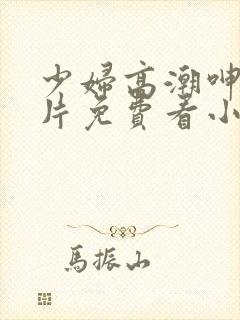 少婦高潮呻
片免費看小
馬振山